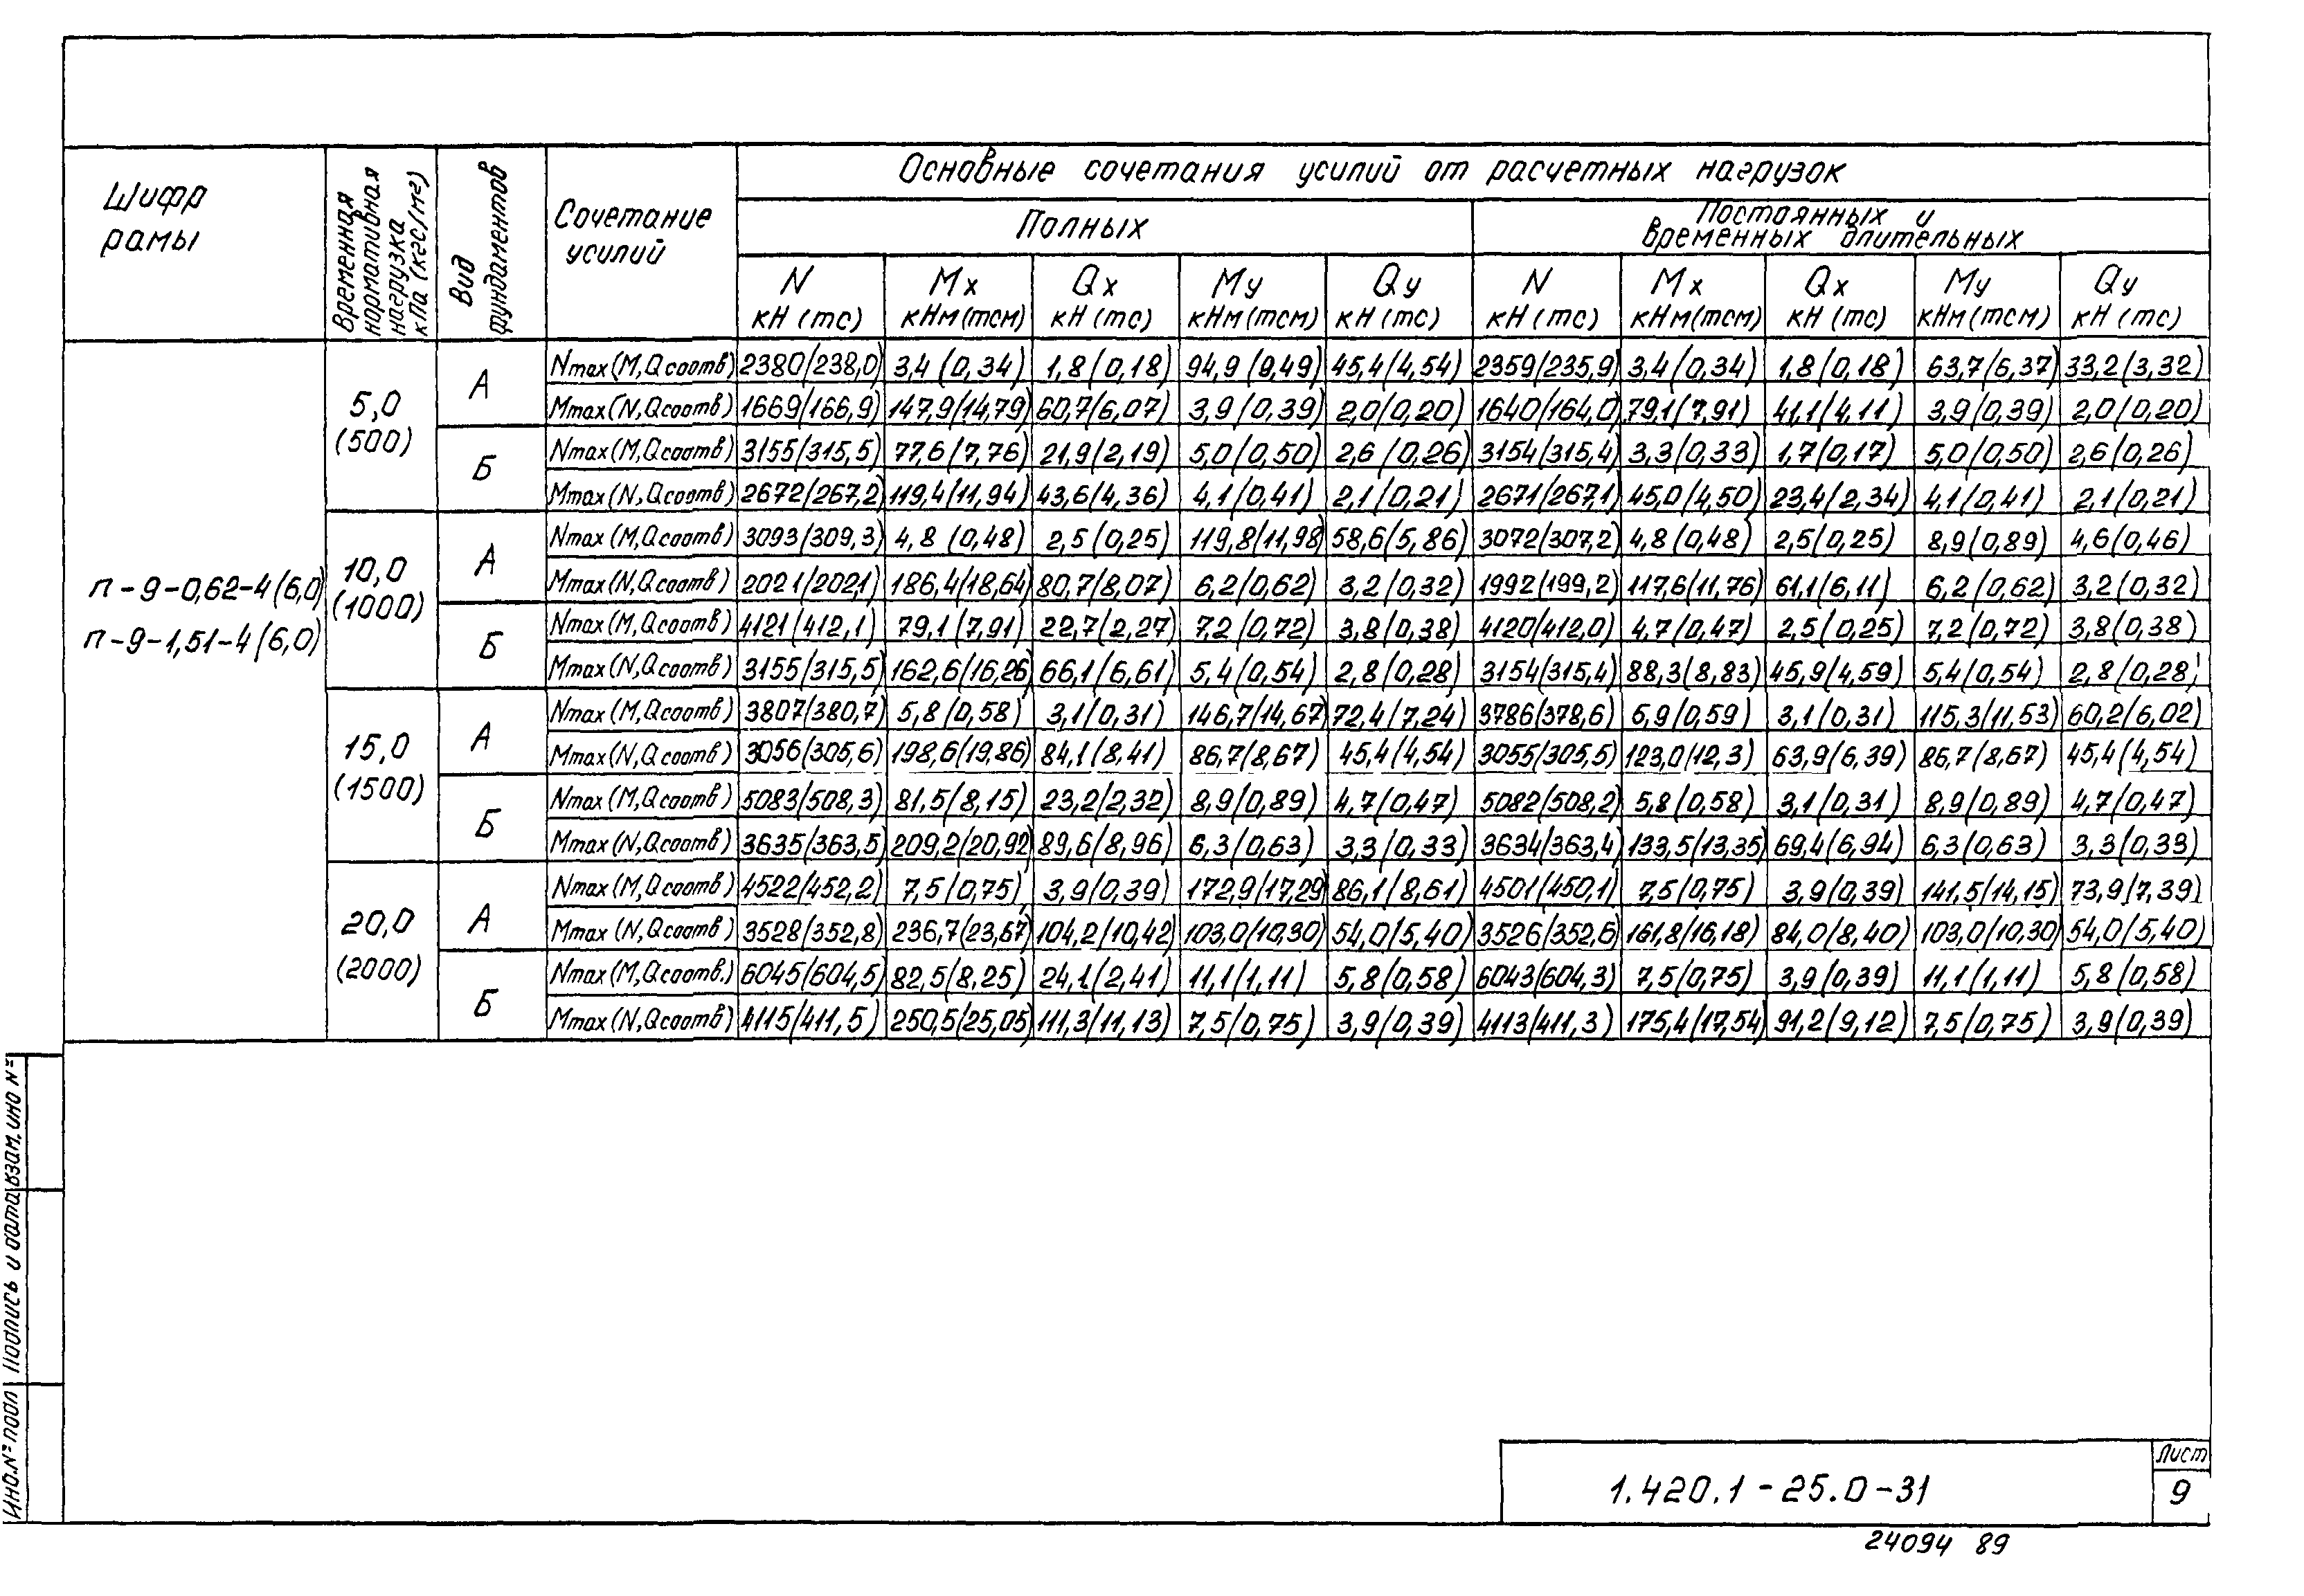 Шифр рамы
Временная нормативная нагрузка кПа (кгс/м²)
Вид фундаментов
Сочетание усилий
Основные сочетания усилий от расчетных нагрузок
Полных
Постоянных и временных длительных
N кН (тс) Mx кНм(тсм) Qx кН (тс) My кНм(тсм) Qy кН (тс) N кН (тс) Mx кНм(тсм) Qx кН (тс) My кНм(тсм) Qy кН (тс)
п-9-0,62-4(6,0)
п-9-1,51-4(6,0)
5,0 (500)
А
Nmax(M,Qсоотв) 2380/238,0) 3,4 (0,34) 1,8 (0,18) 94,9 (9,49) 45,4(4,54) 2359/235,9) 3,4 (0,34) 1,8 (0,18) 63,7(6,37) 33,2(3,32)
Mmax(N,Qсоотв) 1669(166,9) 147,9(14,79) 60,7(6,07) 3,9(0,39) 2,0(0,20) 1640(164,0) 79,1(7,91) 41,1(4,11) 3,9(0,39) 2,0(0,20)
Б
Nmax(M,Qсоотв) 3155(315,5) 77,6(7,76) 21,9(2,19) 5,0(0,50) 2,6(0,26) 3154(315,4) 3,3(0,33) 1,7(0,17) 5,0(0,50) 2,6(0,26)
Mmax(N,Qсоотв) 2672(267,2) 119,4(11,94) 43,6(4,36) 4,1(0,41) 2,1(0,21) 2671(267,1) 45,0(4,50) 23,4(2,34) 4,1(0,41) 2,1(0,21)
10,0 (1000)
А
Nmax(M,Qсоотв) 3093(309,3) 4,8 (0,48) 2,5(0,25) 119,8(11,98) 58,6(5,86) 3072(307,2) 4,8(0,48) 2,5(0,25) 8,9(0,89) 4,6(0,46)
Mmax(N,Qсоотв) 2021(202,1) 186,4(18,64) 80,7(8,07) 6,2(0,62) 3,2(0,32) 1992(199,2) 117,6(11,76) 61,1(6,11) 6,2(0,62) 3,2(0,32)
Б
Nmax(M,Qсоотв) 4121(412,1) 79,1(7,91) 22,7(2,27) 7,2(0,72) 3,8(0,38) 4120(412,0) 4,7(0,47) 2,5(0,25) 7,2(0,72) 3,8(0,38)
Mmax(N,Qсоотв) 3155(315,5) 162,6(16,26) 66,1(6,61) 5,4(0,54) 2,8(0,28) 3154(315,4) 88,3(8,83) 45,9(4,59) 5,4(0,54) 2,8(0,28)
15,0 (1500)
А
Nmax(M,Qсоотв) 3807(380,7) 5,8(0,58) 3,1(0,31) 146,7(14,67) 72,4(7,24) 3786(378,6) 5,9(0,59) 3,1(0,31) 115,3(11,53) 60,2(6,02)
Mmax(N,Qсоотв) 3056(305,6) 198,6(19,86) 84,1(8,41) 86,7(8,67) 45,4(4,54) 3055(305,5) 123,0(12,3) 63,9(6,39) 86,7(8,67) 45,4(4,54)
Б
Nmax(M,Qсоотв) 5083(508,3) 81,5(8,15) 23,2(2,32) 8,9(0,89) 4,7(0,47) 5082(508,2) 5,8(0,58) 3,1(0,31) 8,9(0,89) 4,7(0,47)
Mmax(N,Qсоотв) 3635(363,5) 209,2(20,92) 89,6(8,96) 6,3(0,63) 3,3(0,33) 3634(363,4) 133,5(13,35) 69,4(6,94) 6,3(0,63) 3,3(0,33)
20,0 (2000)
А
Nmax(M,Qсоотв) 4522(452,2) 7,5(0,75) 3,9(0,39) 172,9(17,29) 86,1(8,61) 4501(450,1) 7,5(0,75) 3,9(0,39) 141,5(14,15) 73,9(7,39)
Mmax(N,Qсоотв) 3528(352,8) 236,7(23,67) 104,2(10,42) 103,0(10,30) 54,0(5,40) 3526(352,6) 161,8(16,18) 84,0(8,40) 103,0(10,30) 54,0(5,40)
Б
Nmax(M,Qсоотв.) 6045(604,5) 82,5(8,25) 24,1(2,41) 11,1(1,11) 5,8(0,58) 6043(604,3) 7,5(0,75) 3,9(0,39) 11,1(1,11) 5,8(0,58)
Mmax(N,Qсоотв) 4115(411,5) 250,5(25,05) 111,3(11,13) 7,5(0,75) 3,9(0,39) 4113(411,3) 175,4(17,54) 91,2(9,12) 7,5(0,75) 3,9(0,39)
Инв.№ подл Подпись и дата Взам. инв №
1.420.1-25.0-31
Лист
9
24094 89